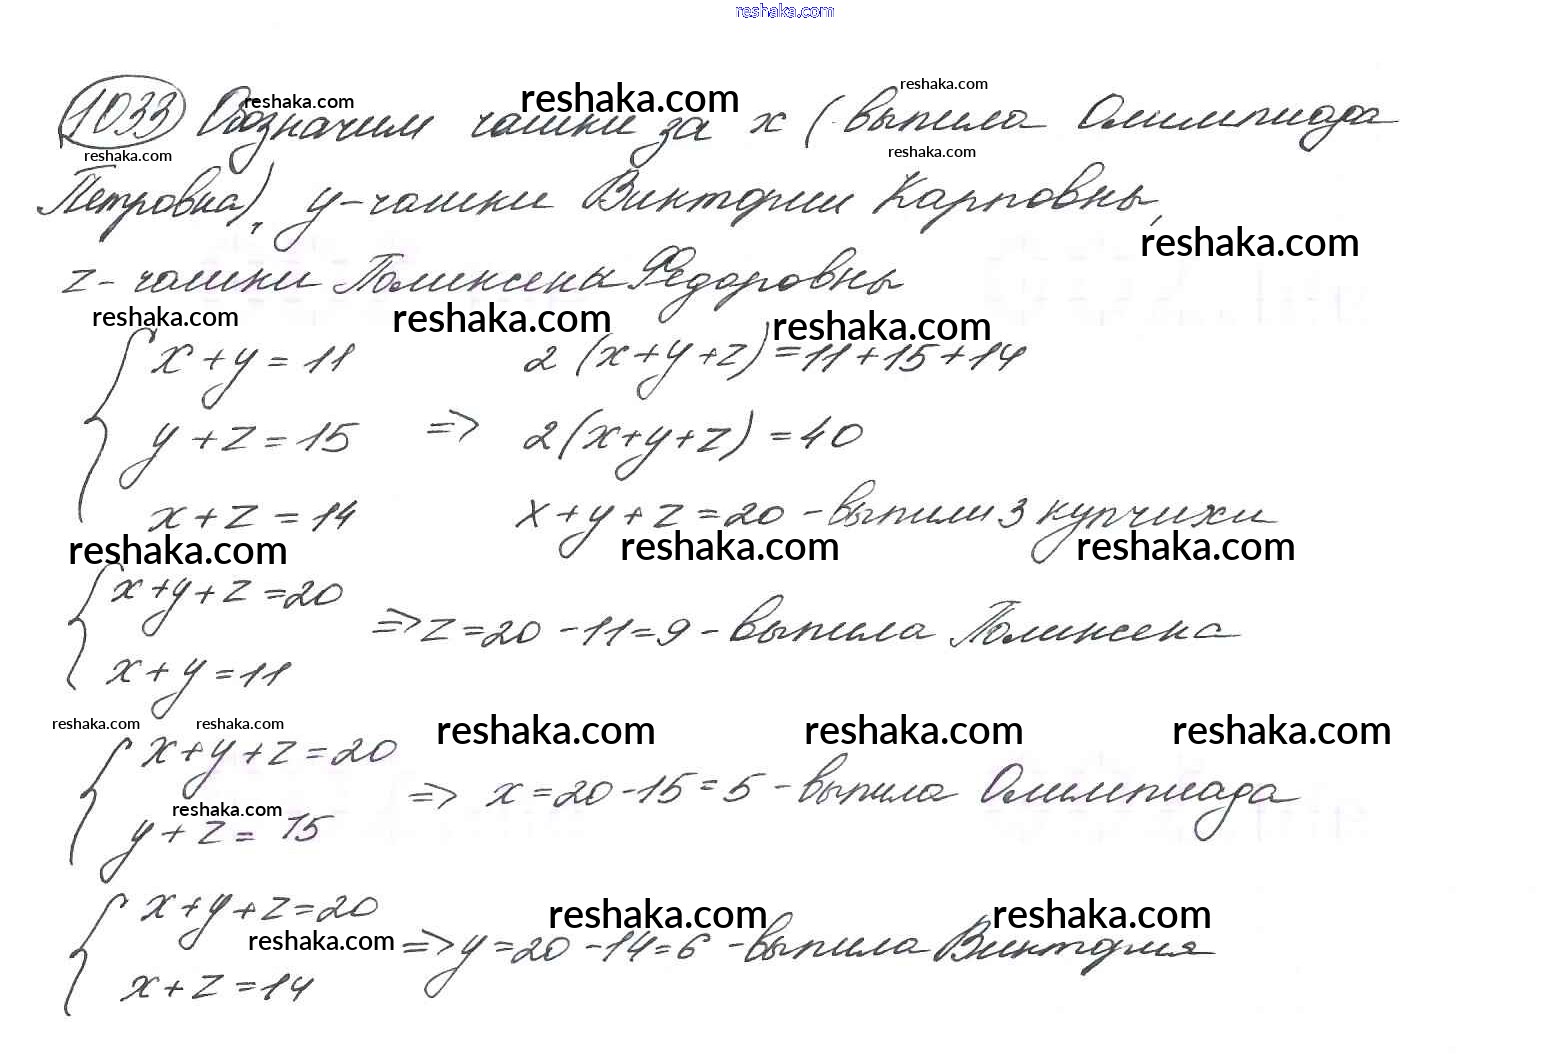 reshaka.com
1033 Обозначим чашки за x (выпила Олимпиада
reshaka.com reshaka.com reshaka.com
reshaka.com reshaka.com
Петровна), y-чашки Виктории Карповны,
reshaka.com
z-чашки Поликсена Федоровны
reshaka.com reshaka.com reshaka.com
x+y=11 2(x+y+z)=11+15+14
y+z=15 => 2(x+y+z)=40
x+z=14 x+y+z=20 - выпили 3 купчихи
reshaka.com reshaka.com reshaka.com
x+y+z=20
=> z=20-11=9 - выпила Поликсена
x+y=11
reshaka.com reshaka.com reshaka.com reshaka.com reshaka.com
x+y+z=20
=> x=20-15=5 - выпила Олимпиада
reshaka.com
y+z=15
x+y+z=20
reshaka.com reshaka.com
reshaka.com => y=20-14=6 - выпила Виктория
x+z=14